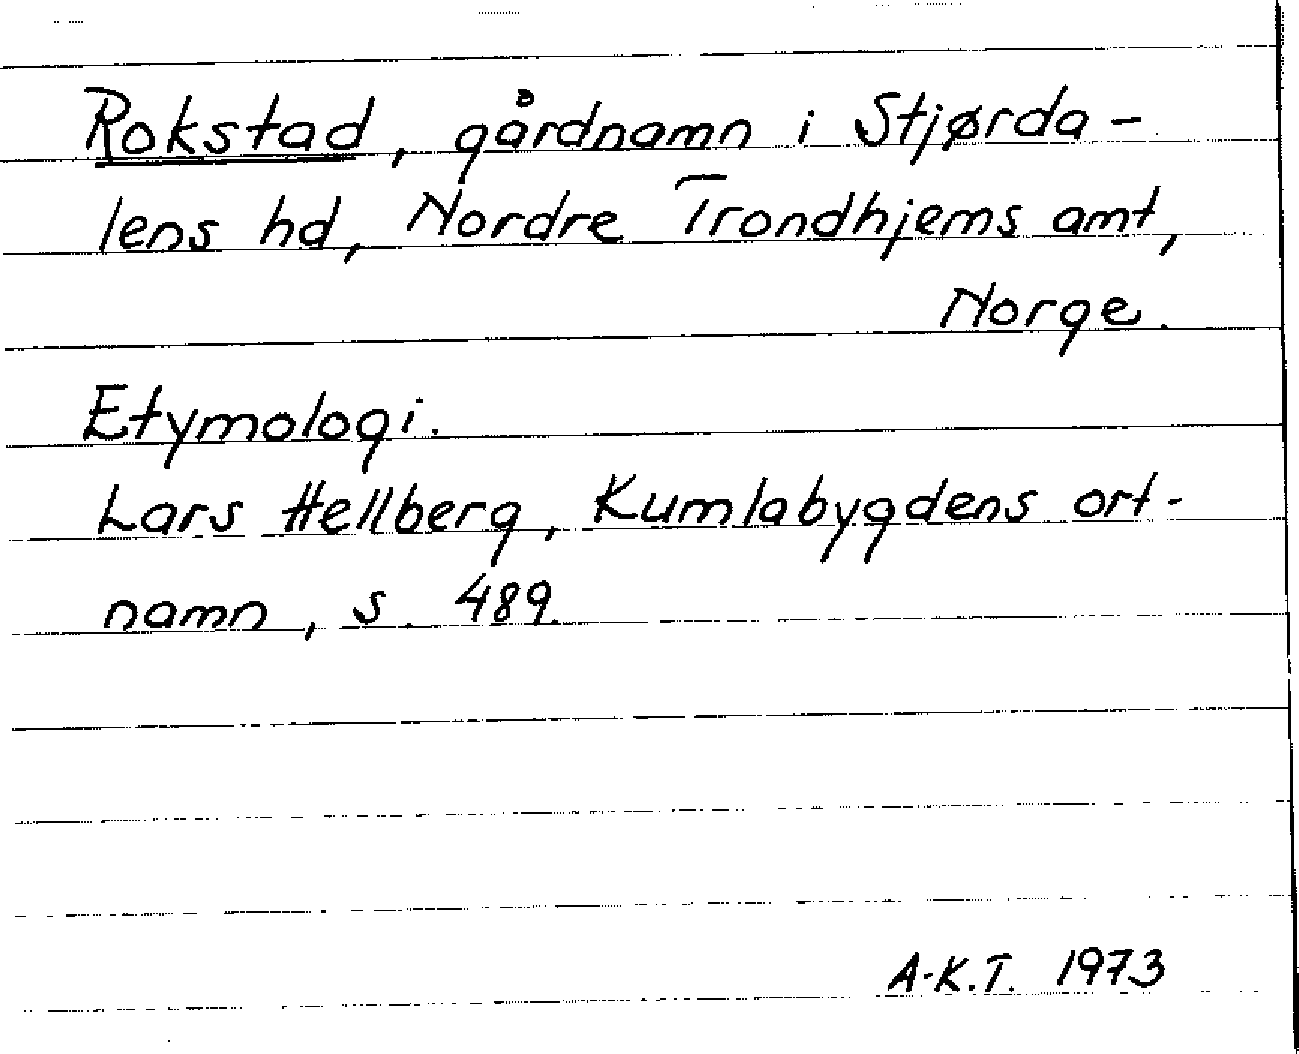 Rokstad, gårdnamn i Stjørda-
lens hd, Nordre Trondhjems amt,
Norge.
Etymologi.
Lars Hellberg, Kumlabygdens ort-
namn, s. 489.
A-K.T. 1973